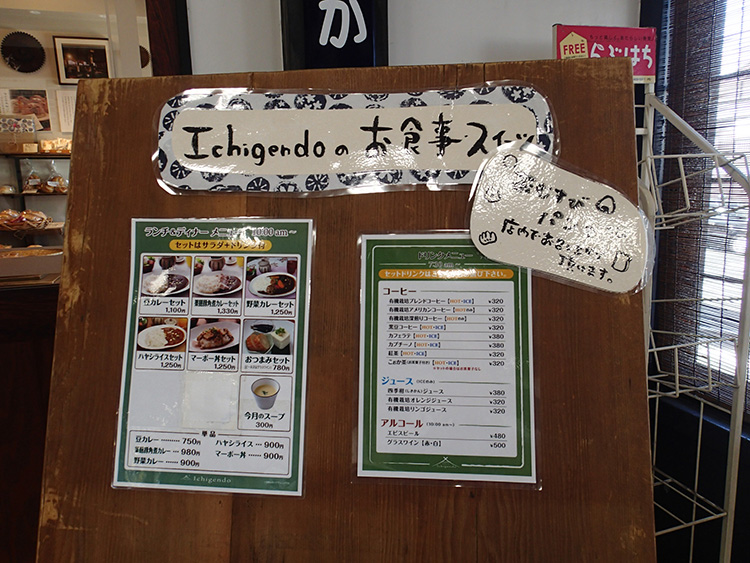 か
FREE
らぶはち
Ichigendoの お食事・スイーツ
おむすび
パン
店内でお召し上がり
頂けます。
ランチ&ディナー メニュー 10:00am～
セットはサラダ+ドリンク付
豆カレーセット
1,100円
1,330円
野菜カレーセット
1,250円
ハヤシライスセット
1,250円
マーボー丼セット
1,250円
おつまみセット
780円
今月のスープ
300円
単品
豆カレー ……… 750円
角煮カレー … 980円
野菜カレー … 900円
ハヤシライス … 900円
マーボー丼 … 900円
Ichigendo
ドリンクメニュー
7:30 am～
セットドリンクは
下さい。
コーヒー
有機栽培ブレンドコーヒー【HOT・ICE】 ¥320
有機栽培アメリカンコーヒー【HOTのみ】 ¥320
有機栽培深煎りコーヒー【HOT】 ¥320
黒豆コーヒー【HOT・ICE】 ¥320
カフェラテ【HOT・ICE】 ¥380
カプチーノ【HOT・ICE】 ¥380
紅茶【HOT・ICE】 ¥320
こぉか茶(お茶菓子付き)【HOT・ICE】 ¥320
※セットの場合はお茶菓子なし
ジュース (ICEのみ)
四季柑(しきかん)ジュース ¥380
有機栽培オレンジジュース ¥320
有機栽培リンゴジュース ¥320
アルコール (10:00 am～)
エビスビール ¥480
グラスワイン【赤・白】 ¥500